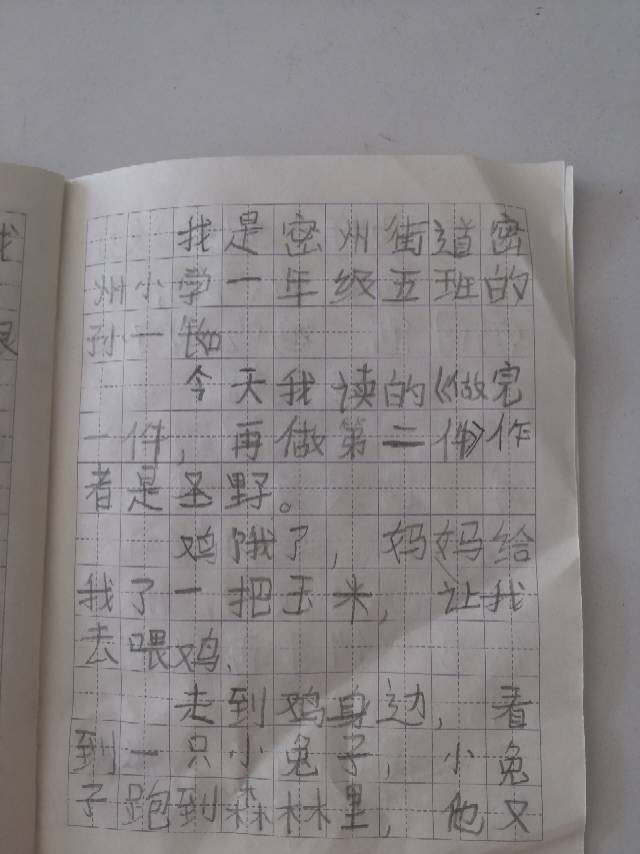 我是密州街道密
州小学一年级五班的
孙一
今天我读的《做完
一件，再做第二件》作
者是圣野。
鸡饿了，妈妈给
我了一把玉米，让我
去喂鸡、
走到鸡身边，看
到一只小兔子，小兔
子跑到森林里，他又